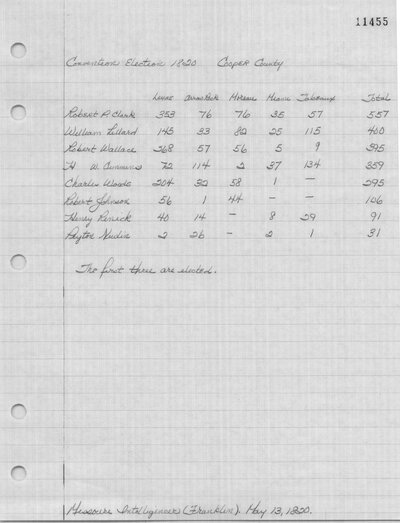 11455
Convention Election 1820 Cooper County
Lamine Arrow Rock Moreau Miami Tabeaux Total
Robert P. Clark 353 76 76 35 57 557
William Lillard 145 33 82 25 115 400
Robert Wallace 268 57 56 5 9 395
H W Cummins 72 114 2 37 134 359
Charles Woods 204 32 58 1 — 295
Robert Johnson 56 1 44 — — 106
Henry Renick 40 14 — 8 29 91
Peyton 2 26 — 2 1 31
The first three are elected.
Missouri Intelligencer (Franklin). May 13, 1820.